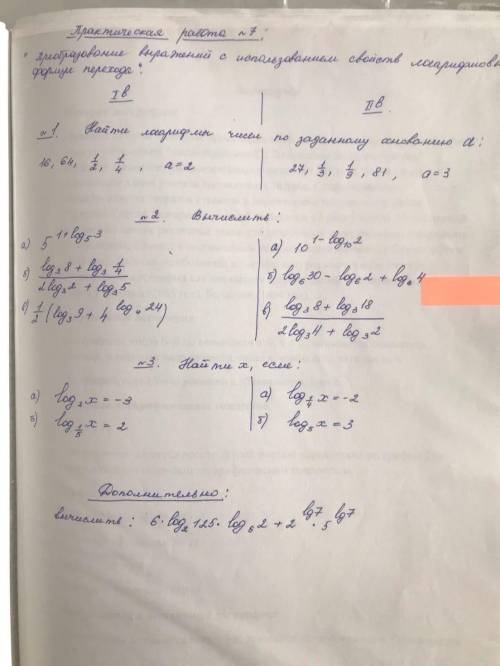 Практическая работа №7:
"Преобразование выражений с использованием свойств логарифмов
формул перехода".
I в
II в.
№1. Найти логарифмы чисел по заданному основанию a:
16, 64, 1/2, 1/4, a=2
27, 1/3, 1/9, 81, a=3
№2. Вычислить:
а) 5^(1+log₅3)
а) 10^(1-log₁₀2)
б) (log₃8 + log₃ 1/4) / (2log₃2 + log₃5)
б) log₆30 - log₆2 + log 4
в) 1/2 (log₃9 + 4^(log₄24))
в) (log₃8 + log₃18) / (2log₃4 + log₃2)
№3. Найти x, если:
а) log₂x = -3
а) log_(1/4) x = -2
б) log_(1/5) x = 2
б) log₅x = 3
Дополнительно:
вычислить: 6·log₂125·log₆2 + 2^(lg7)·5^(lg7)